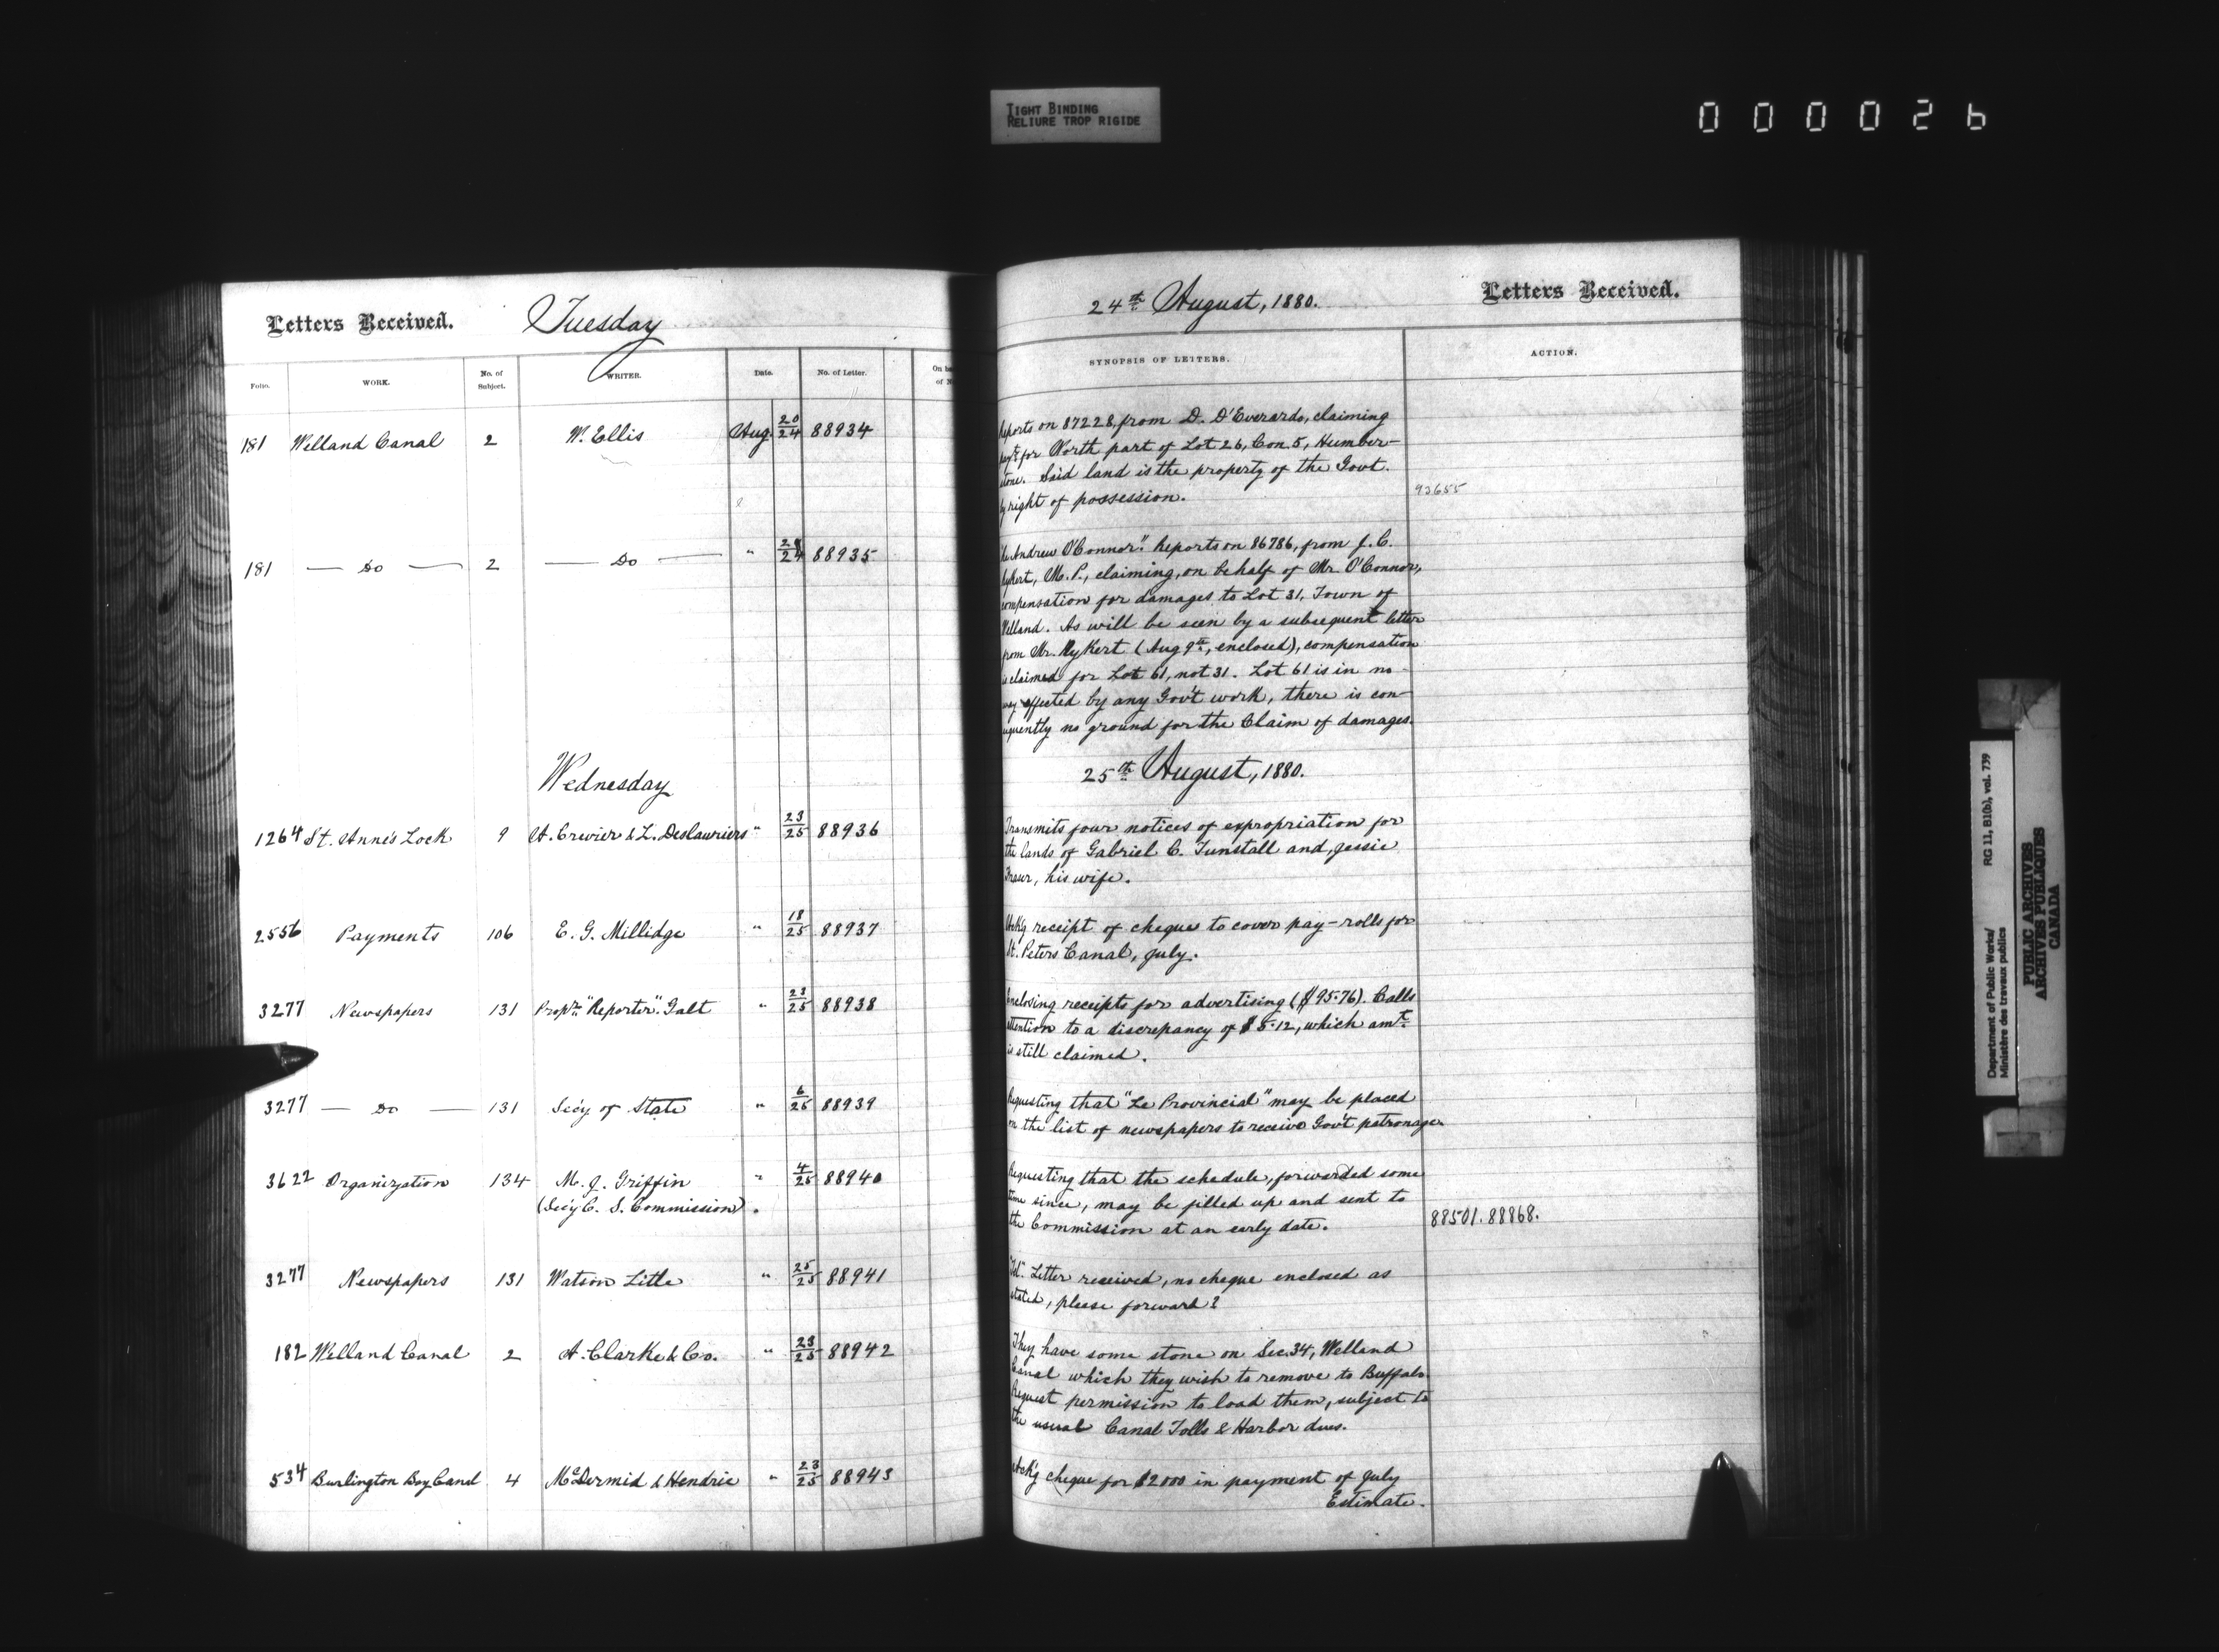 TIGHT BINDING
RELIURE TROP RIGIDE
000026
Letters Received. Tuesday
Folio. WORK. No. of Subject. WRITER. Date. No. of Letter.
181 Welland Canal 2 W. Ellis Aug. 20/24 88934
181 — Do — 2 — Do — " 24 88935
Wednesday
1264 St. Anne's Lock 9 A. Crevier & L. Deslauriers " 23/25 88936
2556 Payments 106 E. G. Millidge " 18/25 88937
3277 Newspapers 131 Prop.rs "Reporter". Galt " 23/25 88938
3277 — Do — 131 Sec'y of State " 6/25 88939
3622 Organization 134 M. J. Griffin " 4/25 88940
(Sec'y C. S. Commission).
3277 Newspapers 131 Watson Little " 25/25 88941
182 Welland Canal 2 A. Clarke & Co. " 23/25 88942
534 Burlington Bay Canal 4 McDermid & Hendrie " 23/25 88943
24th August, 1880. Letters Received.
SYNOPSIS OF LETTERS. ACTION.
eports on 87228, from D. D'Everardo, claiming
pay't for North part of Lot 26, Con. 5, Humber-
stone. Said land is the property of the Govt.
by right of possession.
93655
Andrew O'Connor". Reports on 86786, from J. C.
Rykert, M. P., claiming, on behalf of Mr. O'Connor,
ompensation for damages to Lot 31, Town of
Welland. As will be seen by a subsequent letter
from Mr. Rykert (Aug 9th, enclosed), compensation
is claimed for Lot 61, not 31. Lot 61 is in no
way affected by any Gov't work, there is con-
equently no ground for the Claim of damages.
25th August, 1880.
Transmits four notices of expropriation for
the lands of Gabriel C. Tunstall and Jessie
Fraser, his wife.
Ack'g receipt of cheque to cover pay-rolls for
St. Peters Canal, July.
Enclosing receipts for advertising ($95.76). Calls
attention to a discrepancy of $5.12, which amt.
is still claimed.
Requesting that "Le Provincial" may be placed
on the list of newspapers to receive Gov't patronage.
Requesting that the schedule, forwarded some
time since, may be filled up and sent to
the Commission at an early date.
88501. 88868.
"Tel". Letter received, no cheque enclosed as
stated, please forward?
They have some stone on Sec. 34, Welland
Canal which they wish to remove to Buffalo.
Request permission to load them, subject to
the usual Canal Tolls & Harbor dues.
Ack'g cheque for $2000 in payment of July
Estimate.
Department of Public Works/ RG 11, B1(b), vol. 739
Ministère des travaux publics
PUBLIC ARCHIVES
ARCHIVES PUBLIQUES
CANADA